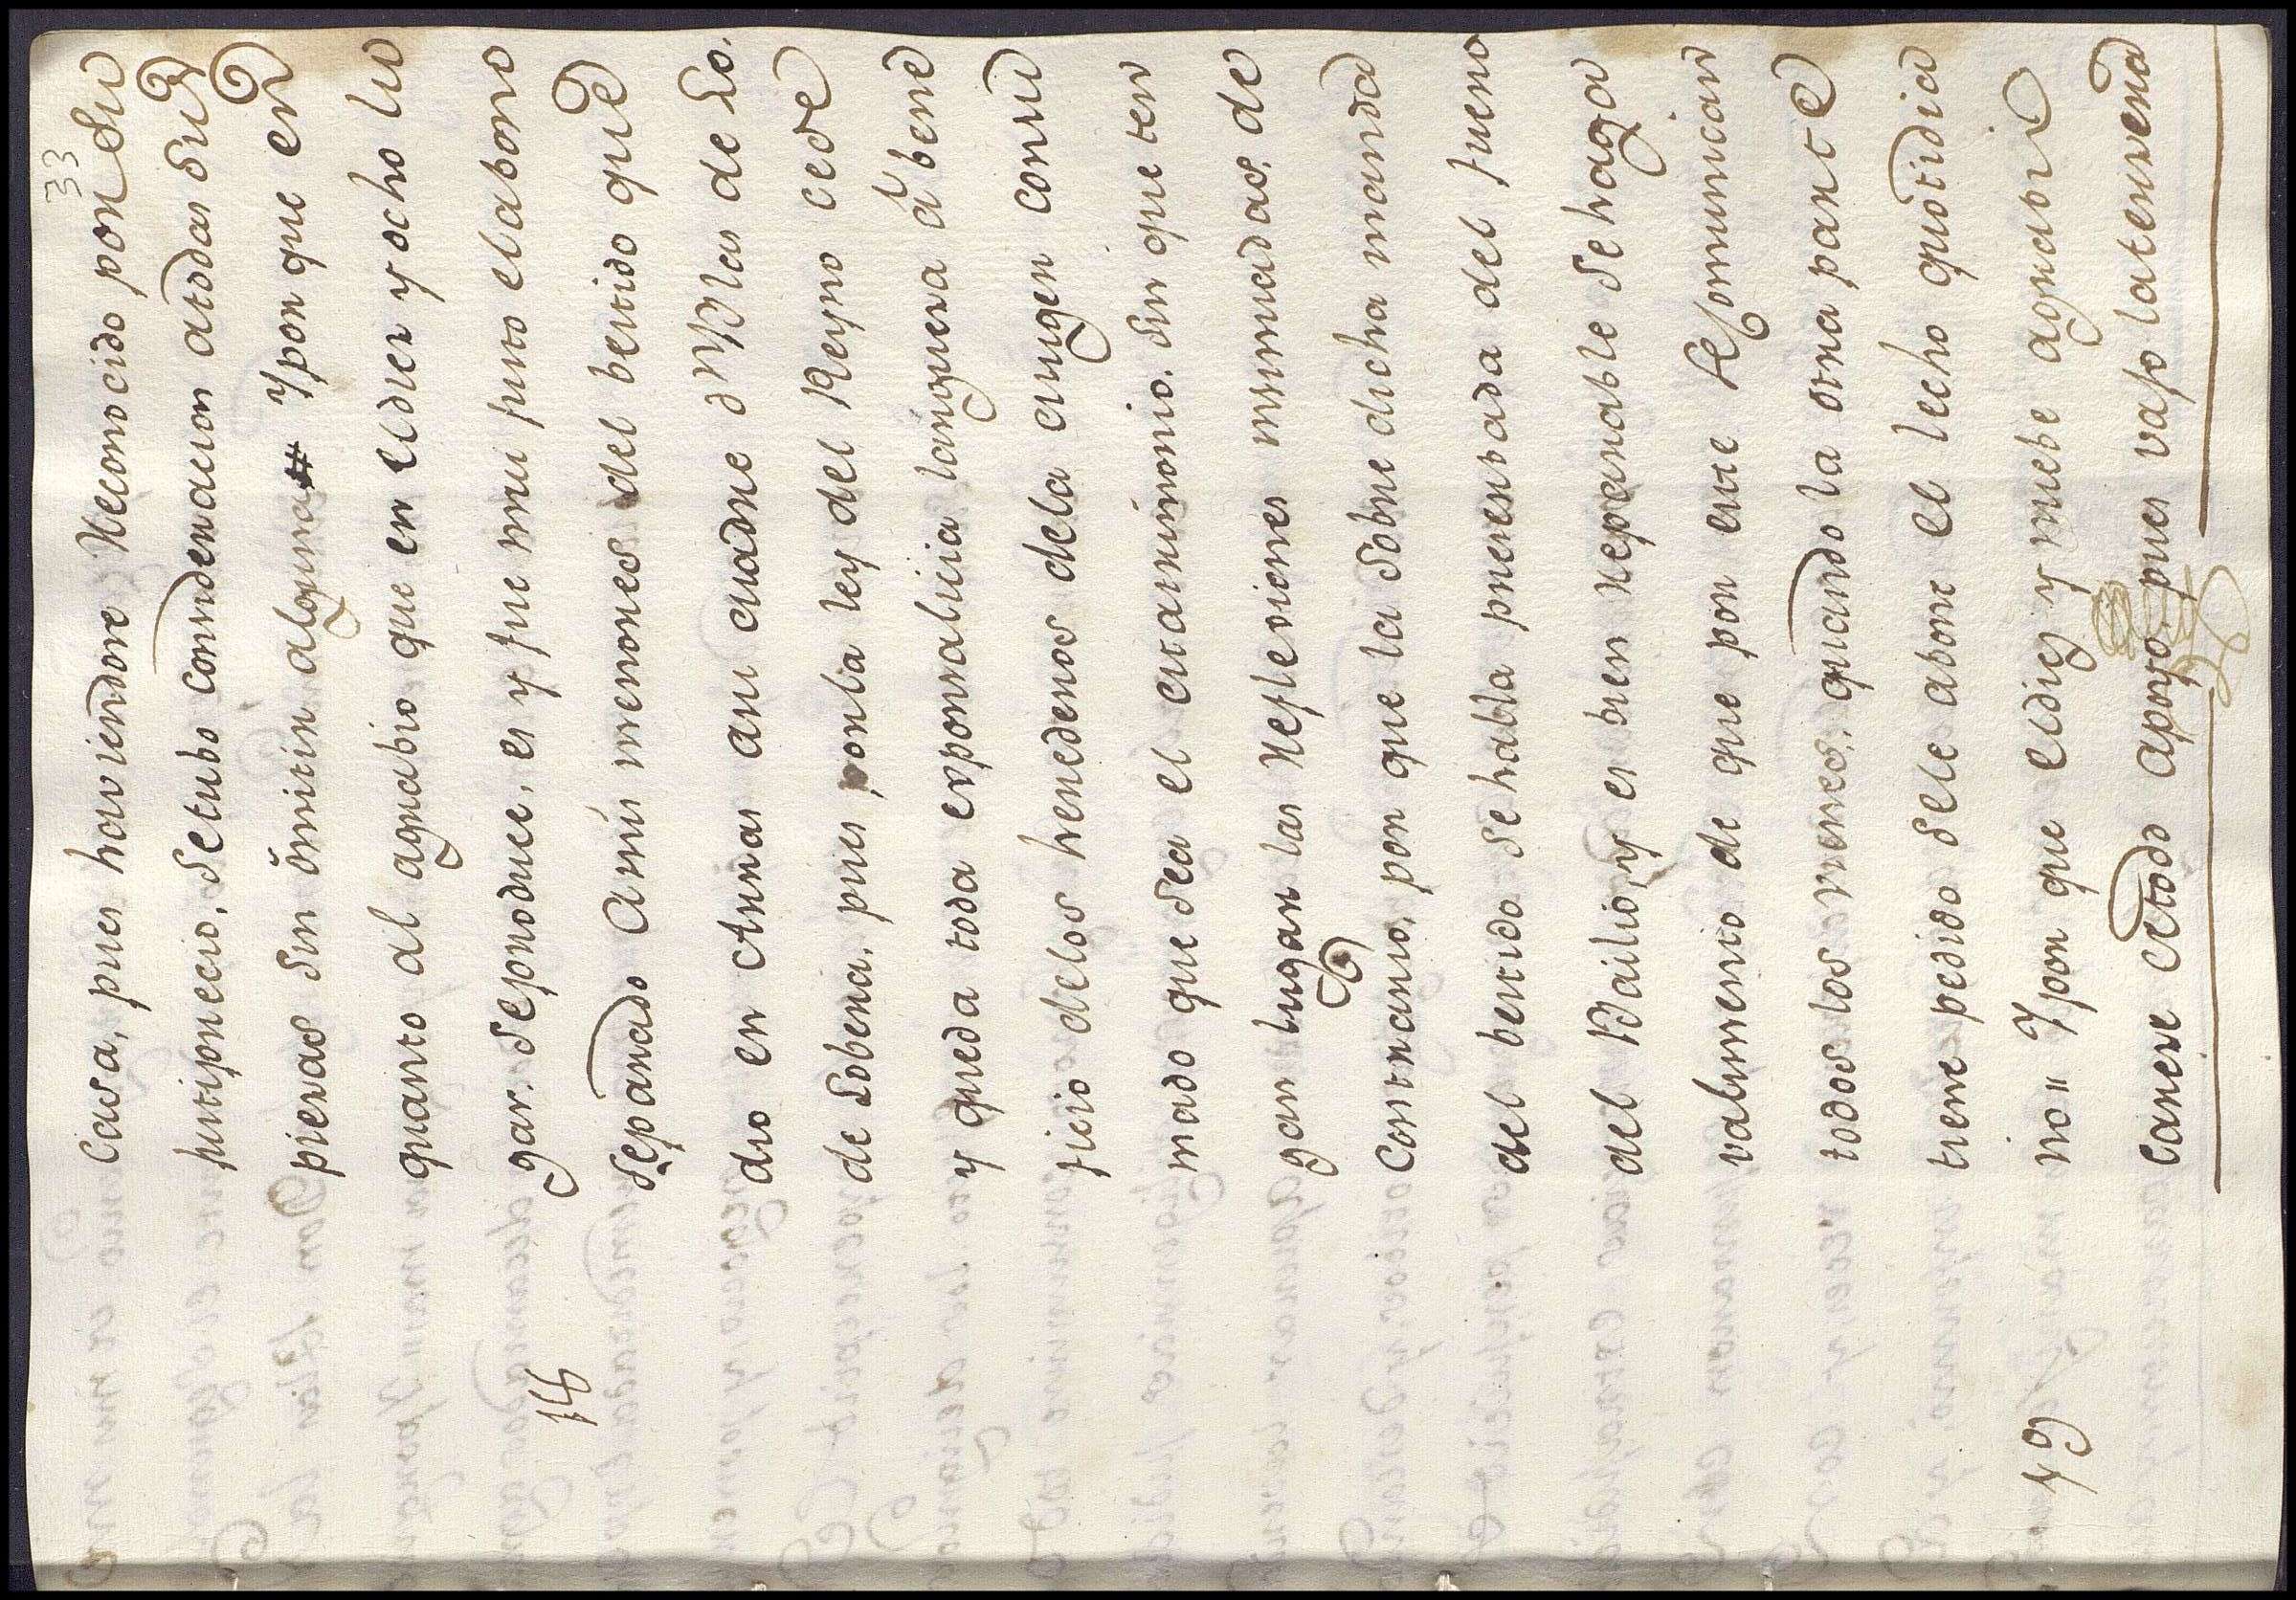 33
Casa, pues haviendose Reconocido por su
justiprecio, se tubo consideracion atodas sus
piezas sin omitir alguna Ypor que en
quanto al agrabio que en el diez y ocho lu
18 gar. se produce, es y fue mui justo el abono
separado a mis menores del bestido que
dio en Arras asu Madre Dª Blas de Lo.
de Lobera, pues por la ley del Reyno cede
y queda toda esponsalicia larguera á bene
ficio delos herederos dela muger consu
mado que sea el matrimonio. sin que ten
gan lugar las Reflesiones insinuadas, de
Contrario, por que la sobre dicha manda
del bestido se habla preserbada del fuero
del Bailio, y es bien reparable se haga
valimento de que por este se Comunican
todos los vienes, quando la otra parte
tiene pedido sele abone el lecho quotidia
19 no = Ypor que el diez y nuebe agrabio
carece de todo apoyo, pues vajo la tercera